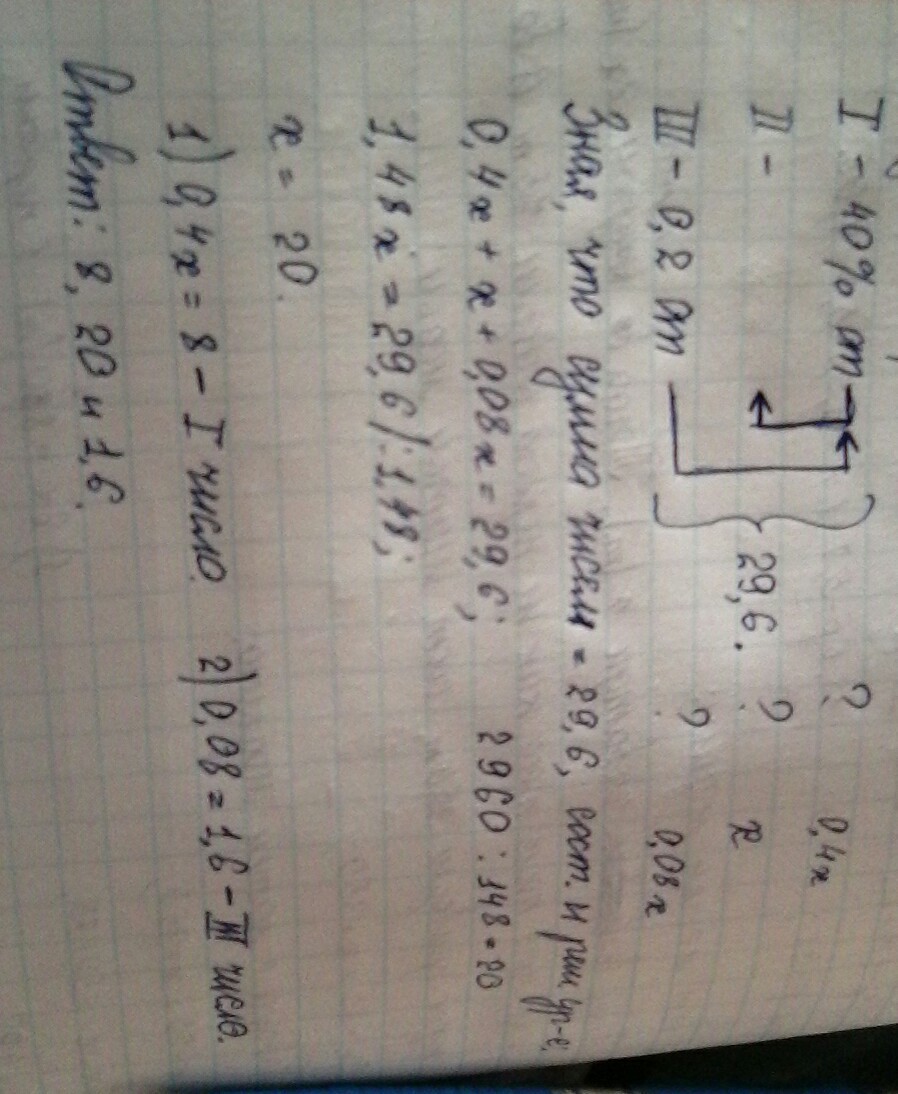 I - 40% от ? 0,4x
II - 29,6. ? x
III - 0,2 от ? 0,08x
Зная, что сумма чисел = 29,6, сост. и реш ур-е:
0,4x + x + 0,08x = 29,6; 2960 : 148 = 20
1,48x = 29,6 /:1,48;
x = 20.
1) 0,4x = 8 - I число. 2) 0,08 = 1,6 - III число.
Ответ: 8, 20 и 1,6.